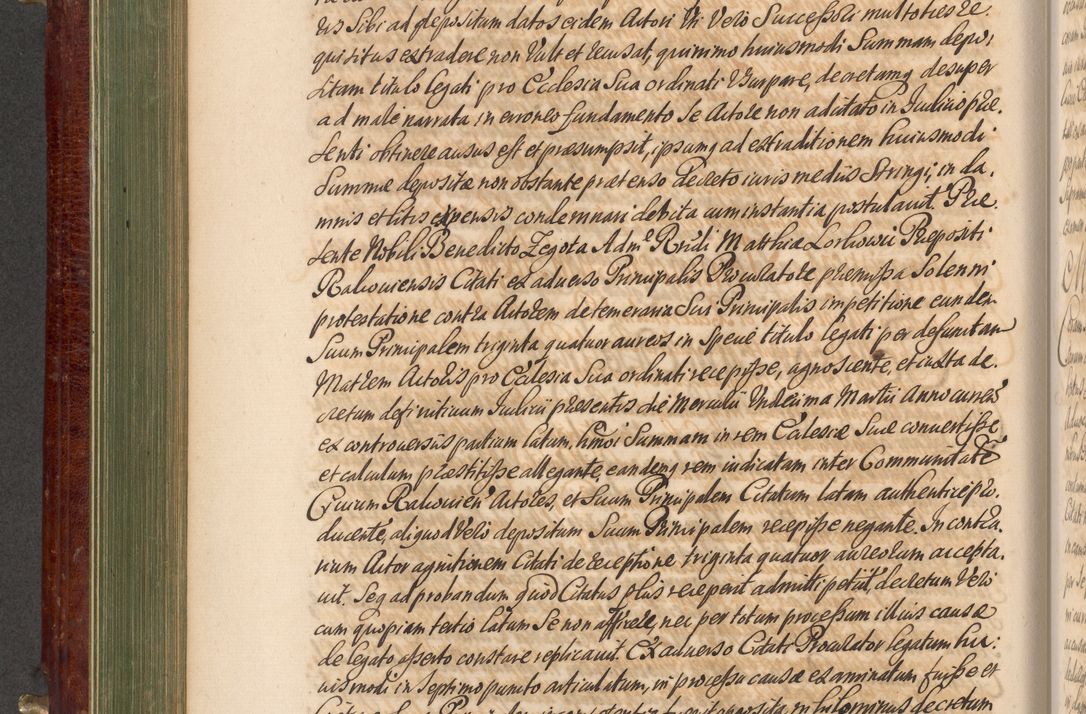 us Sibi ad depositum datos eidem Actori Vti Vero Successori multoties re-
quisitus extradere non Vult et recusat, quinimo huiusmodi Summam depo,
sitam titulo legati pro Ecclesia Sua ordinati Vsurpare, decretumq desuper
ad male narrata in erroneo fundamento Se Actore non adcitato in Iudicio præ,
senti obtinere ausus est et præsumpsit, ipsumq ad extraditionem huiusmodi
Summæ depositæ non obstante prætenso decreto iuris mediis Stringi, in da,
mnis et litis expensis condemnari debita cum instantia postulauit. Præ,
sente Nobili Benedicto Zegota Admᵉ Rndi Matthiæ Præpositi
Rakouiensis Citati ex aduerso Principalis Procuratore præmissa Solenni
protestatione contra Actorem de temeraria Sui Principalis impetitione eunden
Suum Principalem triginta quatuor aureos in Specie titulo legati per defunctam
Matrem Actoris pro Ecclesia Sua ordinati recepisse, agnoscente, et iuxta de,
cretum definitiuum Iudicii præsentis die Mercurii Vndecima Martii Anno curren
ex controuersiis partium latum, hmoi Summam in rem Ecclesiæ Suæ conuertisse
et calculum præstitisse allegante, eandemq rem iudicatam inter Communitate
Ciuium Rakouien Actores, et Suum Principalem Citatum latam authentice pro,
ducente, aliquod Vero depositum Suum Principalem recepisse negante. In contra,
rium Actor agnitionem Citati de receptione triginta quatuor aureorum accepta,
uit. Seq ad probandum quod Citatus plus receperit admitti petiit, decretum Vero
cum quopiam tertio latum Se non afficere nec per totum processum illius causæ
de legato asserto constare replicauit. Ex aduerso Citati Procurator legatum hu:
iusmodi in Septimo puncto articulatum, in processu causæ examinatum fuisse et
decretum